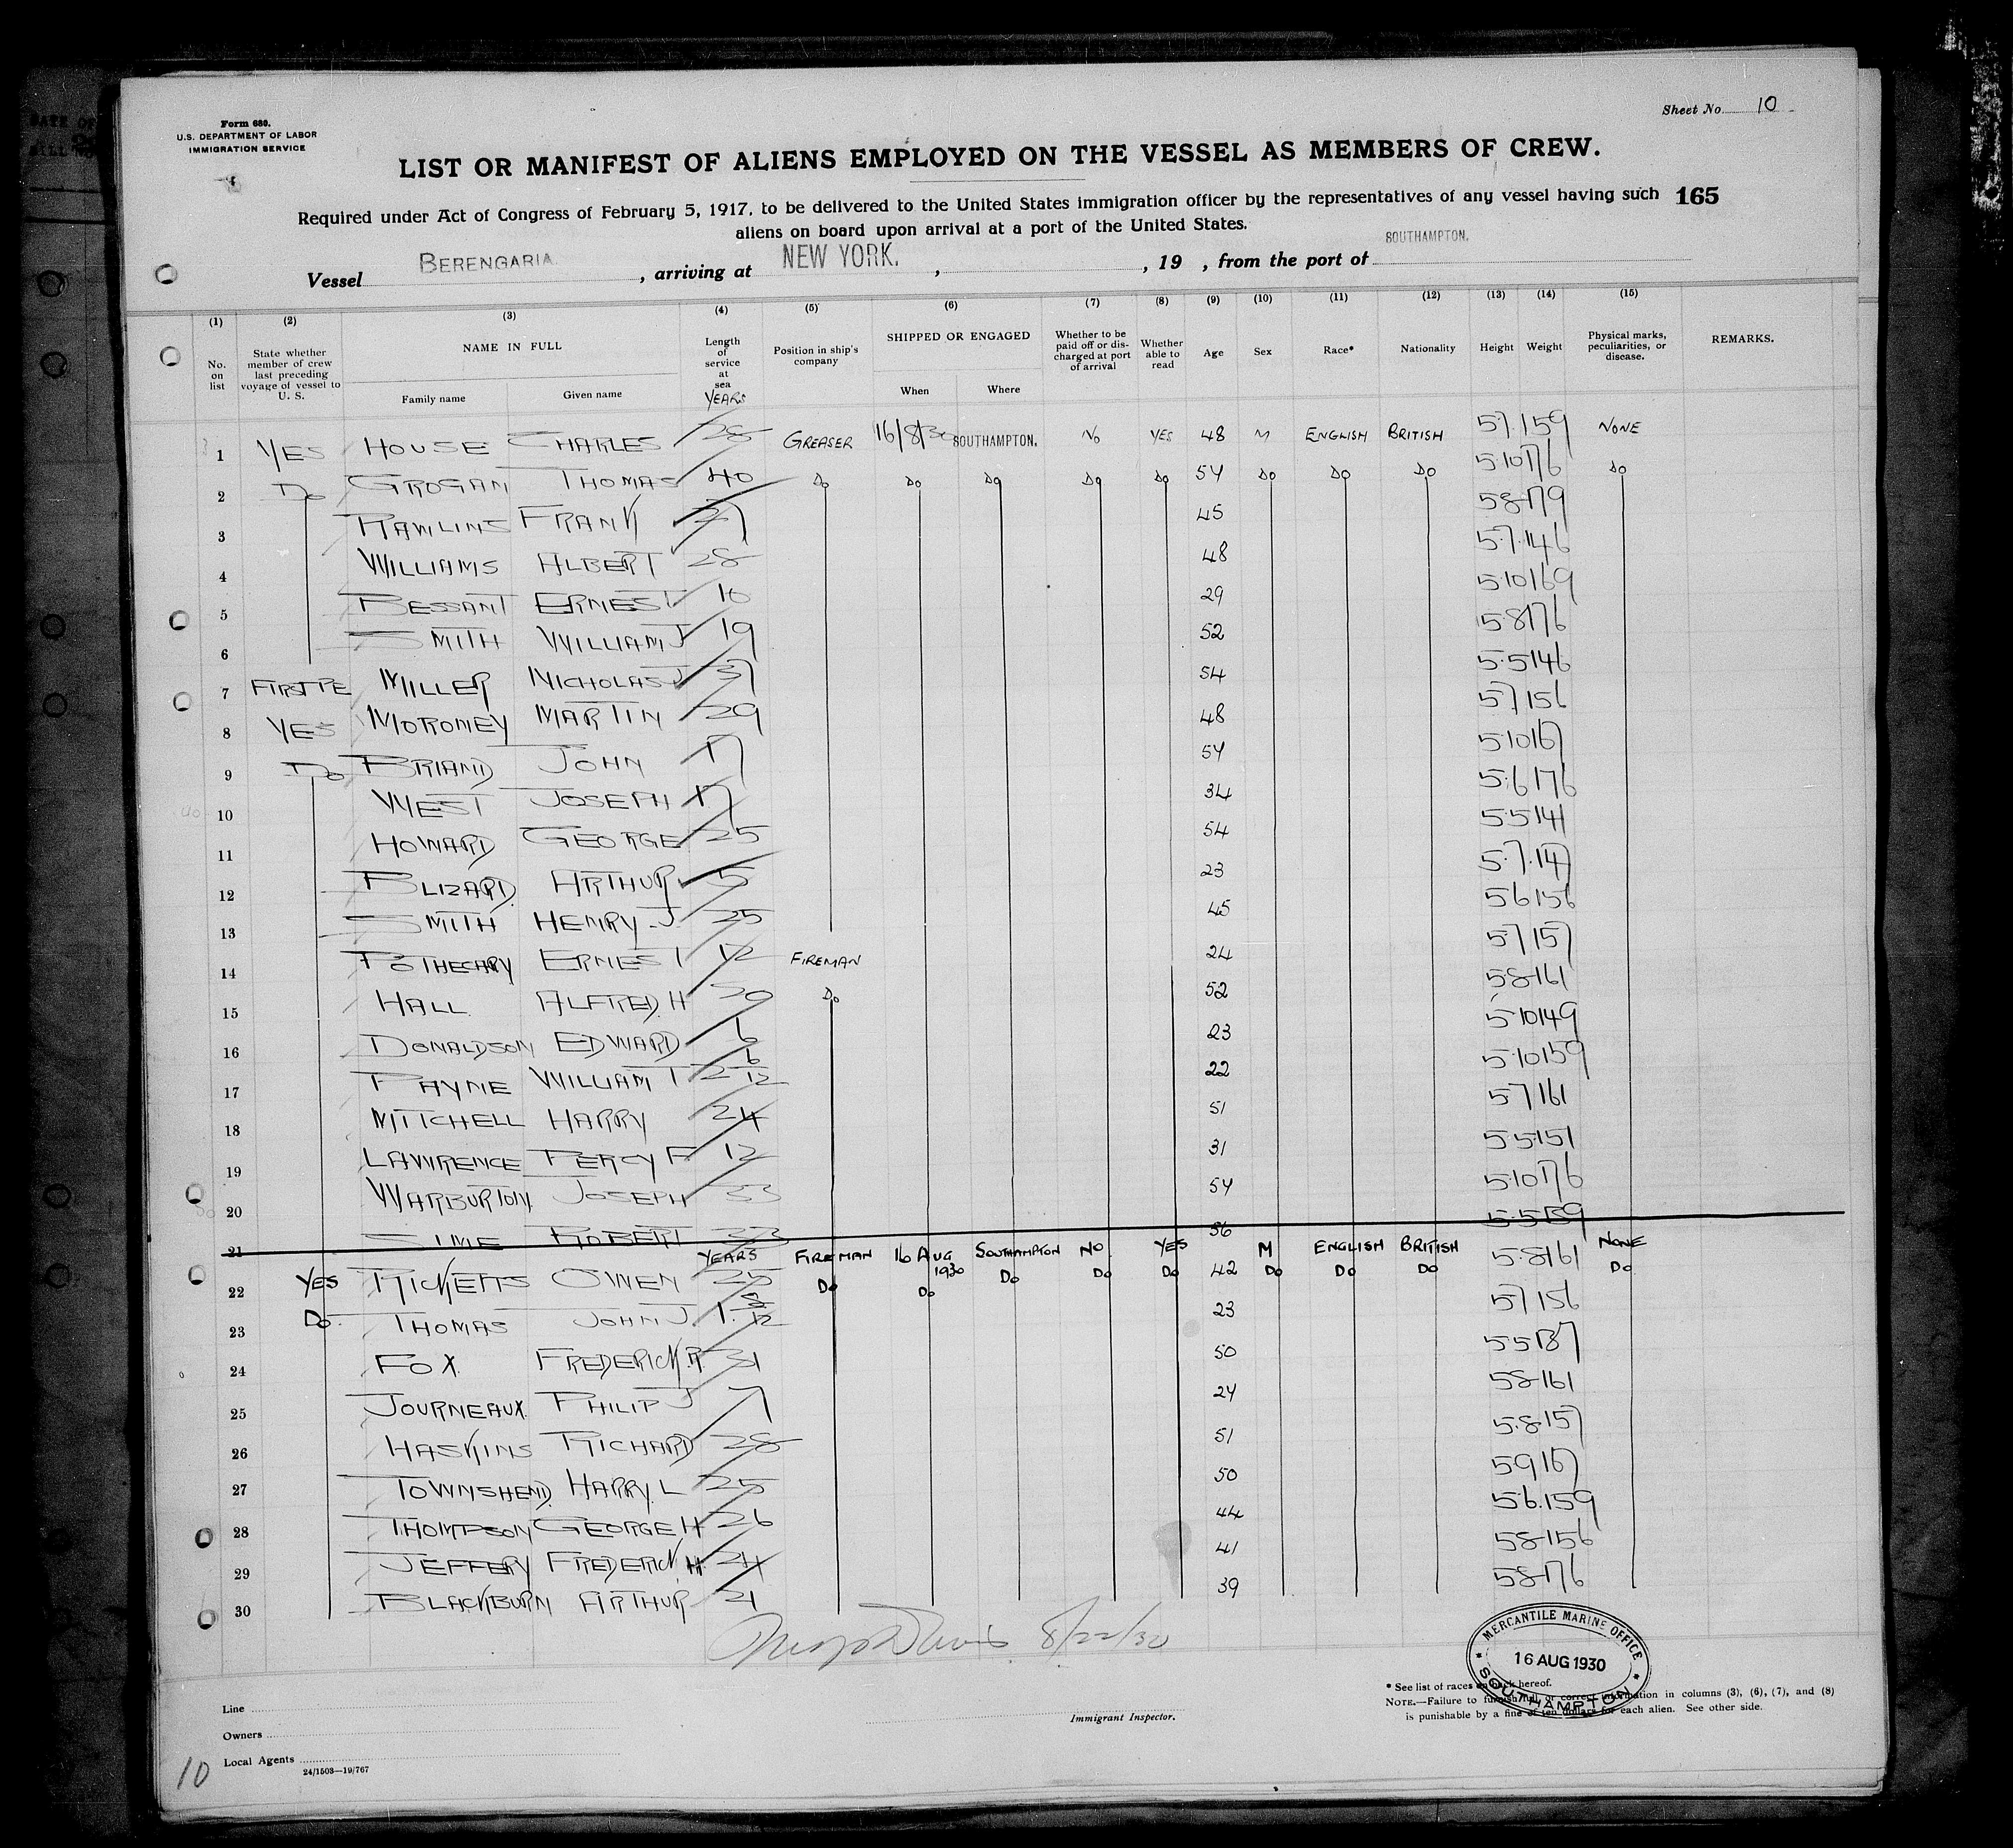 Form 680.
U.S. DEPARTMENT OF LABOR
IMMIGRATION SERVICE
Sheet No. 10
LIST OR MANIFEST OF ALIENS EMPLOYED ON THE VESSEL AS MEMBERS OF CREW.
Required under Act of Congress of February 5, 1917, to be delivered to the United States immigration officer by the representatives of any vessel having such 165
aliens on board upon arrival at a port of the United States.
Vessel BERENGARIA, arriving at NEW YORK. , , 19 , from the port of SOUTHAMPTON.
(1) (2) (3) (4) (5) (6) (7) (8) (9) (10) (11) (12) (13) (14) (15)
No. on list State whether member of crew last preceding voyage of vessel to U. S. NAME IN FULL Family name Given name Length of service at sea YEARS Position in ship's company SHIPPED OR ENGAGED When Where Whether to be paid off or discharged at port of arrival Whether able to read Age Sex Race* Nationality Height Weight Physical marks, peculiarities, or disease. REMARKS.
1 YES HOUSE CHARLES 28 GREASER 16/8/30 SOUTHAMPTON. NO YES 48 M ENGLISH BRITISH 5.7 159 NONE
2 Do GROGAN THOMAS 40 Do Do Do Do Do 54 Do Do Do 5.10 176 Do
3 RAWLINS FRANK 27 45 5.8 179
4 WILLIAMS ALBERT 28 48 5.7.146
5 BESSANT ERNEST 10 29 5.10 169
6 SMITH WILLIAM J 19 52 5.8 176
7 FIRST PE MILLER NICHOLAS J 37 54 5.5 146
8 YES MORONEY MARTIN 29 48 5.7 156
9 Do BRIAND JOHN 17 54 5.10 167
10 WEST JOSEPH 17 34 5.6 176
11 HOWARD GEORGE 25 54 5.5 141
12 BLIZARD. ARTHUR 5 23 5.7.147
13 SMITH HENRY.J. 25 45 5.6 156
14 POTHECARY ERNEST 1/2 FIREMAN 24 5.7 157
15 HALL. ALFRED.H 30 Do 52 5.8 161
16 DONALDSON EDWARD 6 23 5.10 149
17 PAYNE WILLIAM T 2 6/12 22 5.10 159
18 MITCHELL HARRY 24 51 5.7 161
19 LAWRENCE PERCY F 12 31 5.5 151
20 WARBURTON. JOSEPH 33 54 5.10 176
21 SIME ROBERT 33 56 5.5 139
22 YES RICKETTS OWEN YEARS 25 FIREMAN 16 AUG 1930 SOUTHAMPTON NO YES 42 M ENGLISH BRITISH 5.8 161 NONE
23 Do. THOMAS JOHN J. 1. 8/12 Do Do Do Do Do 23 Do Do Do 5.7 156 Do
24 FOX. FREDERICK.R 31 50 5.5 137
25 JOURNEAUX. PHILIP J 7 24 5.8 161
26 HASKINS RICHARD 28 51 5.8.157
27 TOWNSHEND. HARRY. L 25 50 5.9 167
28 THOMPSON GEORGE H 26 44 5.6.159
29 JEFFERY FREDERICK. H. 24 41 5.8 156
30 BLACKBURN ARTHUR 21 39 5.8 176
8/22/30
MERCANTILE MARINE OFFICE
16 AUG 1930
SOUTHAMPTON
Line
Owners
Local Agents
24/1503—19/767
Immigrant Inspector.
* See list of races on back hereof.
NOTE.—Failure to furnish full or correct information in columns (3), (6), (7), and (8)
is punishable by a fine of ten dollars for each alien. See other side.
10